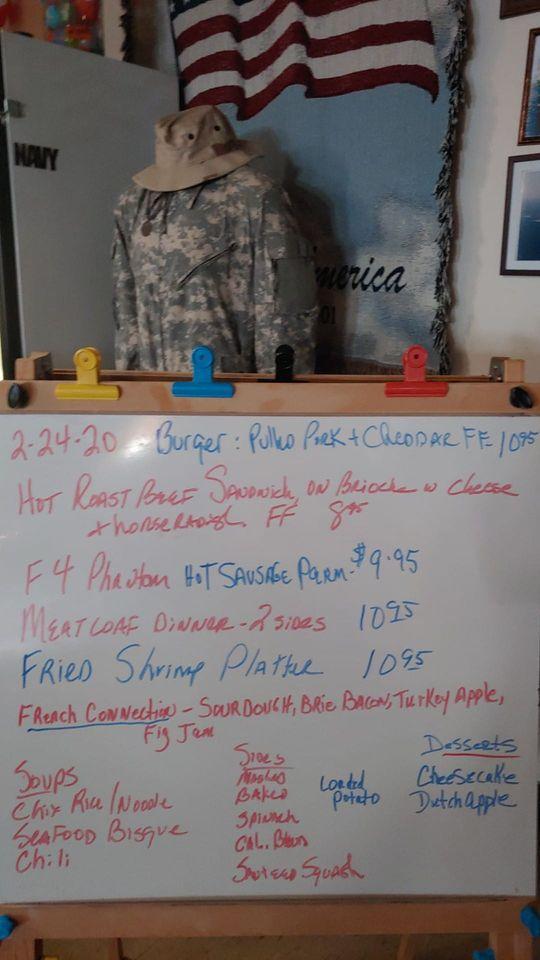 NAVY
merica
01
2-24-20 Burger: Pulled Pork + Cheddar FF 10 95
Hot Roast Beef Sandwich, on Brioche w cheese
+ horseradish. FF 8 95
F4 Phantom Hot Sausage Parm - $9.95
Meatloaf Dinner - 2 sides 10 95
Fried Shrimp Platter 10 95
French Connection - Sourdough, Brie Bacon, Turkey Apple,
Fig Jam
Soups
Chix Rice/Noodle
Seafood Bisque
Chili
Sides
Mashed
Baked
Spinach
Cal. Blend
Sauteed Squash
Loaded
Potato
Desserts
Cheesecake
Dutch apple